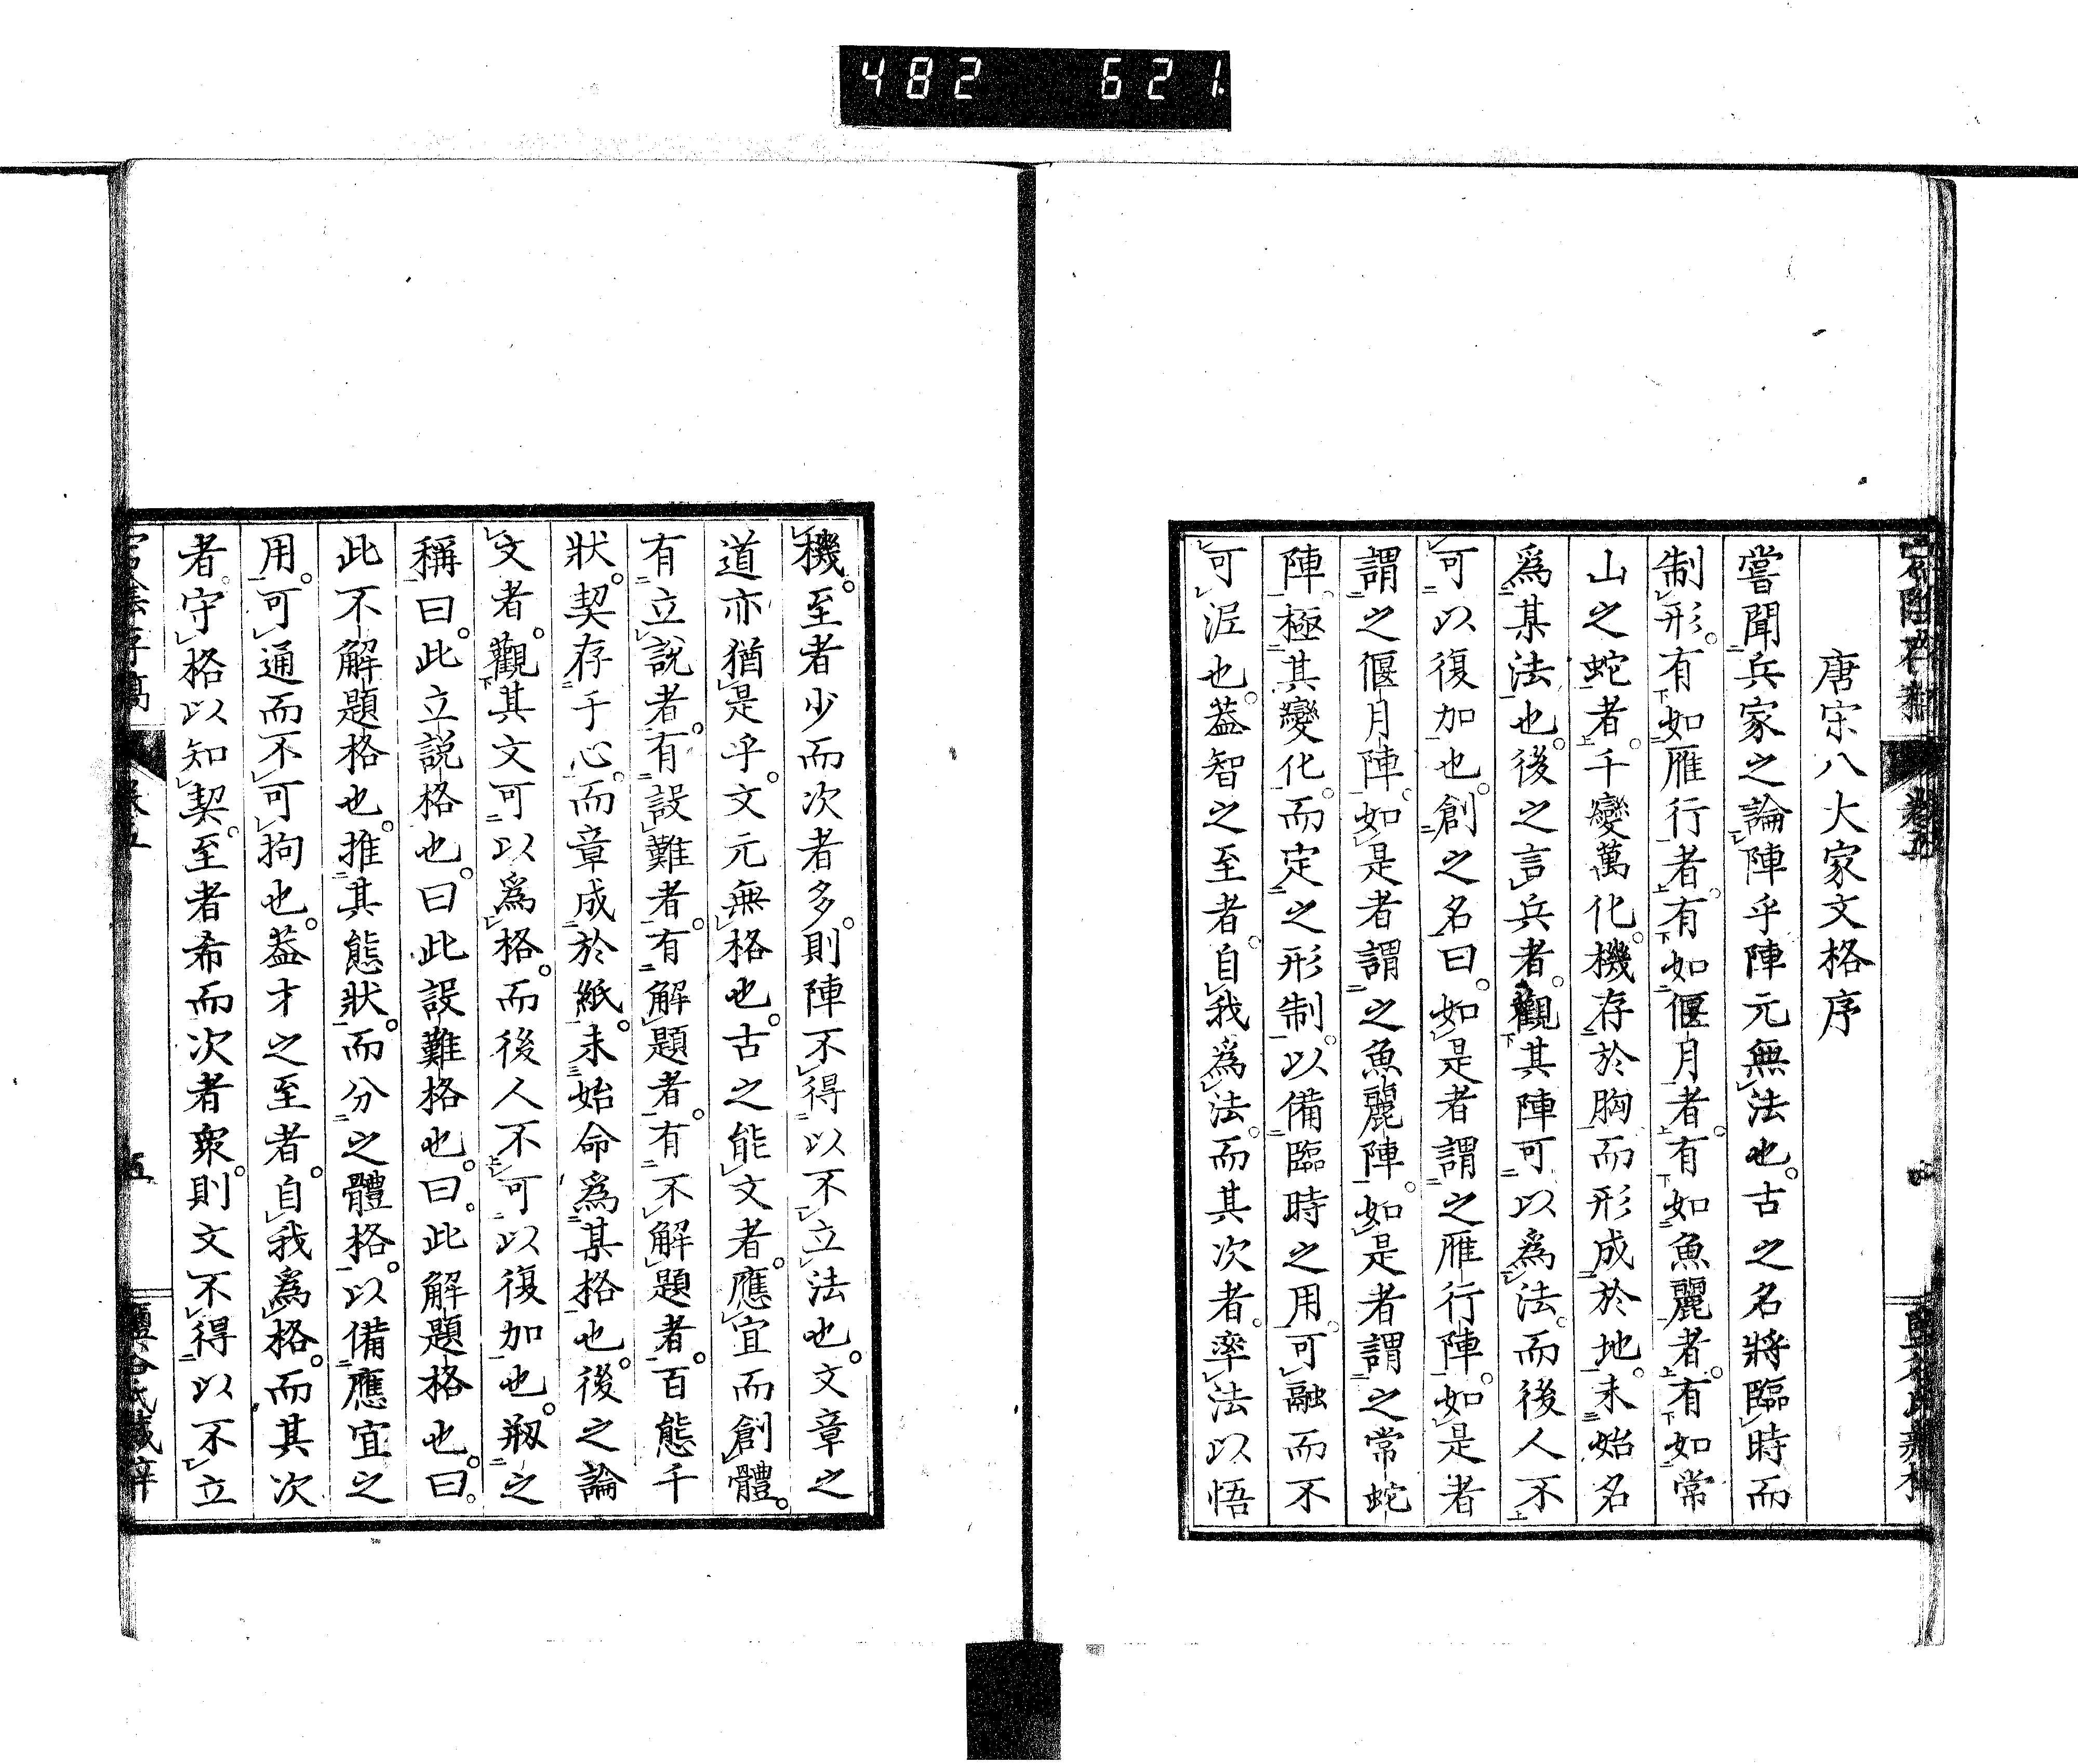 482 621.
唐宋八大家文格序
嘗聞兵家之論陣乎陣元無法也。古之名將臨時而
制形。有如雁行者。有如偃月者。有如魚麗者。有如常
山之蛇者。千變萬化。機存於胸而形成於地。未始名
爲某法也。後之言兵者。觀其陣可以爲法。而後人不
可以復加也。創之名曰。如是者謂之雁行陣。如是者
謂之偃月陣。如是者謂之魚麗陣。如是者謂之常蛇
陣。極其變化。而定之形制。以備臨時之用。可融而不
可泥也。蓋智之至者。自我爲法。而其次者。率法以悟
機。至者少而次者多。則陣不得以不立法也。文章之
道亦猶是乎。文元無格也。古之能文者。應宜而創體。
有立說者。有設難者。有解題者。有不解題者。百態千
狀。契存于心。而章成於紙。未始命爲某格也。後之論
文者。觀其文可以爲格。而後人不可以復加也。剏之
稱曰。此立說格也。曰此設難格也。曰。此解題格也。曰。
此不解題格也。推其態狀。而分之體格。以備應宜之
用。可通而不可拘也。蓋才之至者。自我爲格。而其次
者。守格以知契。至者希而次者衆。則文不得以不立
五